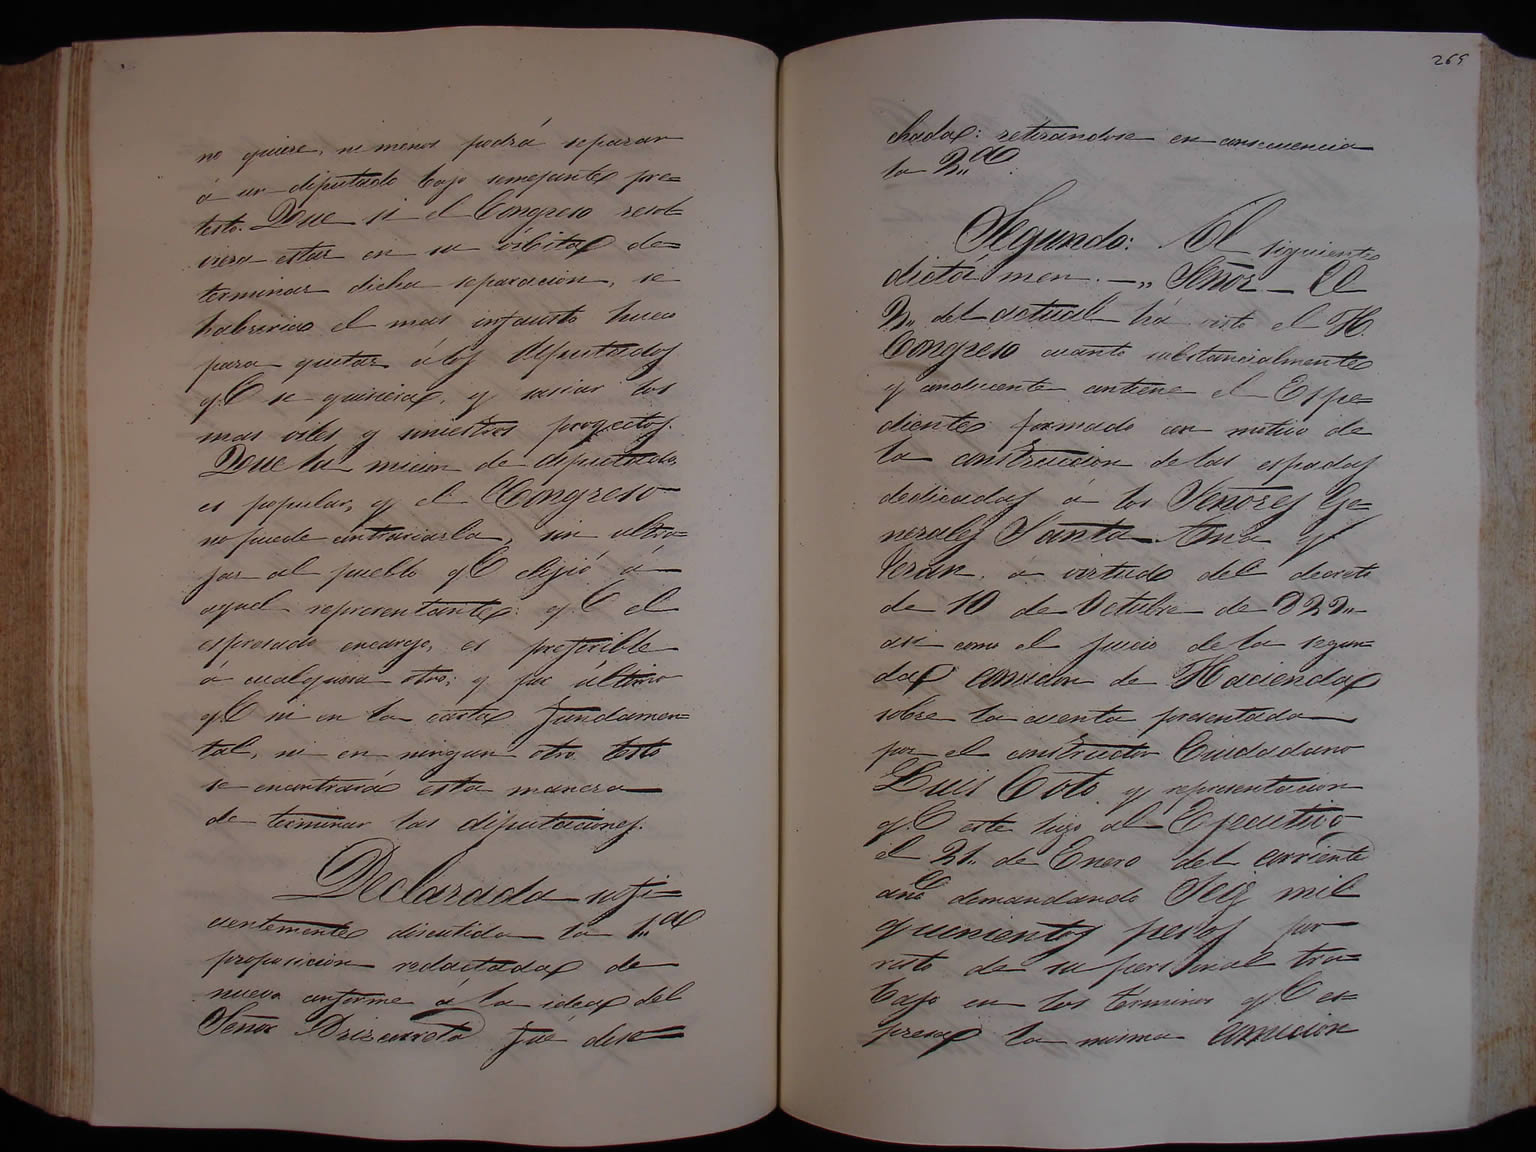 no quiere, ni menos podrá separar
á un diputado bajo semejante pre=
testo. Que si el Congreso resol=
viera estar en su órbita de=
terminar dicha separacion, se
habriria el mas infausto hueco
para quitar á los diputados
qe se quisiera, y saciar los
mas viles y siniestros proyectos.
Que la mision de diputado,
es popular, y el Congreso
no puede contrariarla, sin ultra=
jar al pueblo qe elijió á
aquel representante: qe el
espresado encargo, es preferible
á cualquiera otro; y por último
qe ni en la carta fundamen=
tal, ni en ningun otro testo
se encontrará esta manera
de terminar las diputaciones.
Declarada sufi=
cientemente discutida la 1.a
proposicion redactada de
nuevo conforme á la idea del
Señor Driscarrota fué dese=
269
chada: retirandose en consecuencia
la 2.a
Segundo: Al siguiente
dictámen. —„ Señor — El
2„ del actual há visto el H.
Congreso cuanto substancialmente
y conducente contiene el Espe=
diente formado con motivo de
la construccion de las espadas
dedicadas á los Señores Ge=
nerales Santa Ana y
Terán, á virtud del decreto
de 10 de Octubre de 829„
asi como el juicio de la segun=
da comision de Hacienda
sobre la cuenta presentada
por el constructor Ciudadano
Luis Coto, y representacion
qe este hizo al Ejecutivo
el 21„ de Enero del corriente
año demandando Seis mil
quinientos pesos por
resto de su personal tra=
bajo en los términos qe es=
presa la misma comision